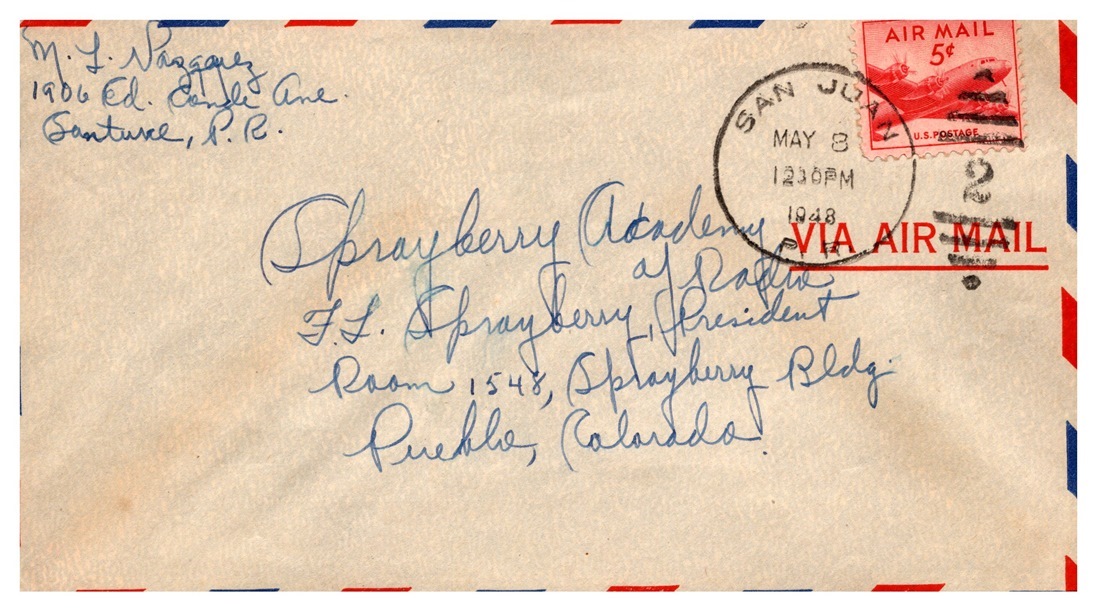 M. L. Vazquez
1906 Ed. Conde Ave.
Santurce, P. R.
AIR MAIL
5¢
U.S. POSTAGE
SAN JUAN
MAY 8
1230PM
1948
P. R.
2
VIA AIR MAIL
Sprayberry Academy
of Radio
F. L. Sprayberry, President
Room 1548, Sprayberry Bldg.
Pueblo, Colorado.